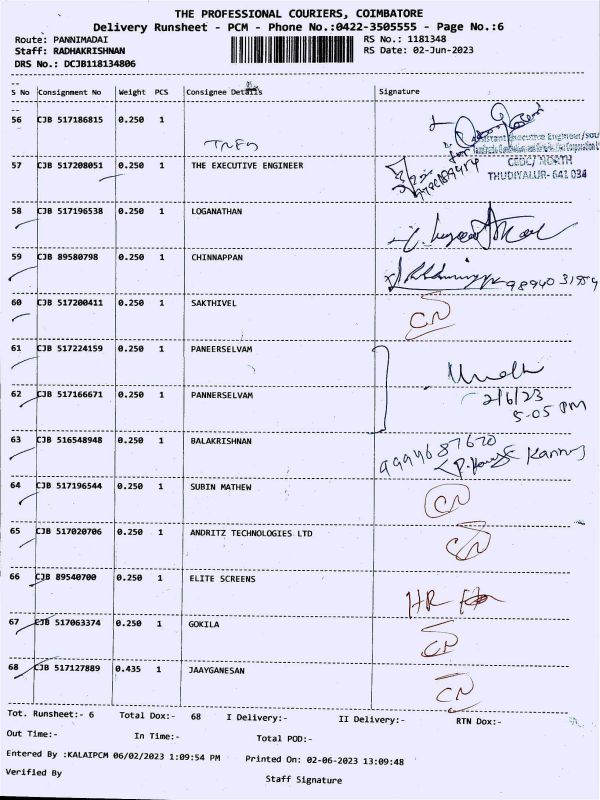 THE PROFESSIONAL COURIERS, COIMBATORE
Delivery Runsheet - PCM - Phone No.:0422-3505555 - Page No.:6
Route: PANNIMADAI RS No.: 1181348
Staff: RADHAKRISHNAN RS Date: 02-Jun-2023
DRS No.: DCJB118134806
S No Consignment No Weight PCS Consignee Details Signature
56 CJB 517186815 0.250 1
Assistant Executive Engineer/
CEDC/ NORTH
57 CJB 517208051 0.250 1 THE EXECUTIVE ENGINEER
THUDIYALUR- 641 034
58 CJB 517196538 0.250 1 LOGANATHAN
59 CJB 89580798 0.250 1 CHINNAPPAN
60 CJB 517200411 0.250 1 SAKTHIVEL
CN
61 CJB 517224159 0.250 1 PANEERSELVAM
62 CJB 517166671 0.250 1 PANNERSELVAM
2/6/23
5-05 PM
63 CJB 516548948 0.250 1 BALAKRISHNAN
64 CJB 517196544 0.250 1 SUBIN MATHEW
CN
65 CJB 517020706 0.250 1 ANDRITZ TECHNOLOGIES LTD
CN
66 CJB 89540700 0.250 1 ELITE SCREENS
HR
67 CJB 517063374 0.250 1 GOKILA
CN
68 CJB 517127889 0.435 1 JAAYGANESAN
CN
Tot. Runsheet:- 6 Total Dox:- 68 I Delivery:- II Delivery:- RTN Dox:-
Out Time:- In Time:- Total POD:-
Entered By :KALAIPCM 06/02/2023 1:09:54 PM Printed On: 02-06-2023 13:09:48
Verified By
Staff Signature